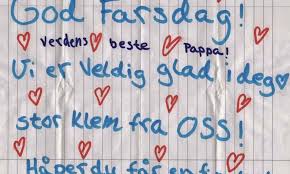 God Farsdag!
Verdens beste Pappa!
Vi er veldig glad i deg
stor klem fra OSS!
Håper du får en